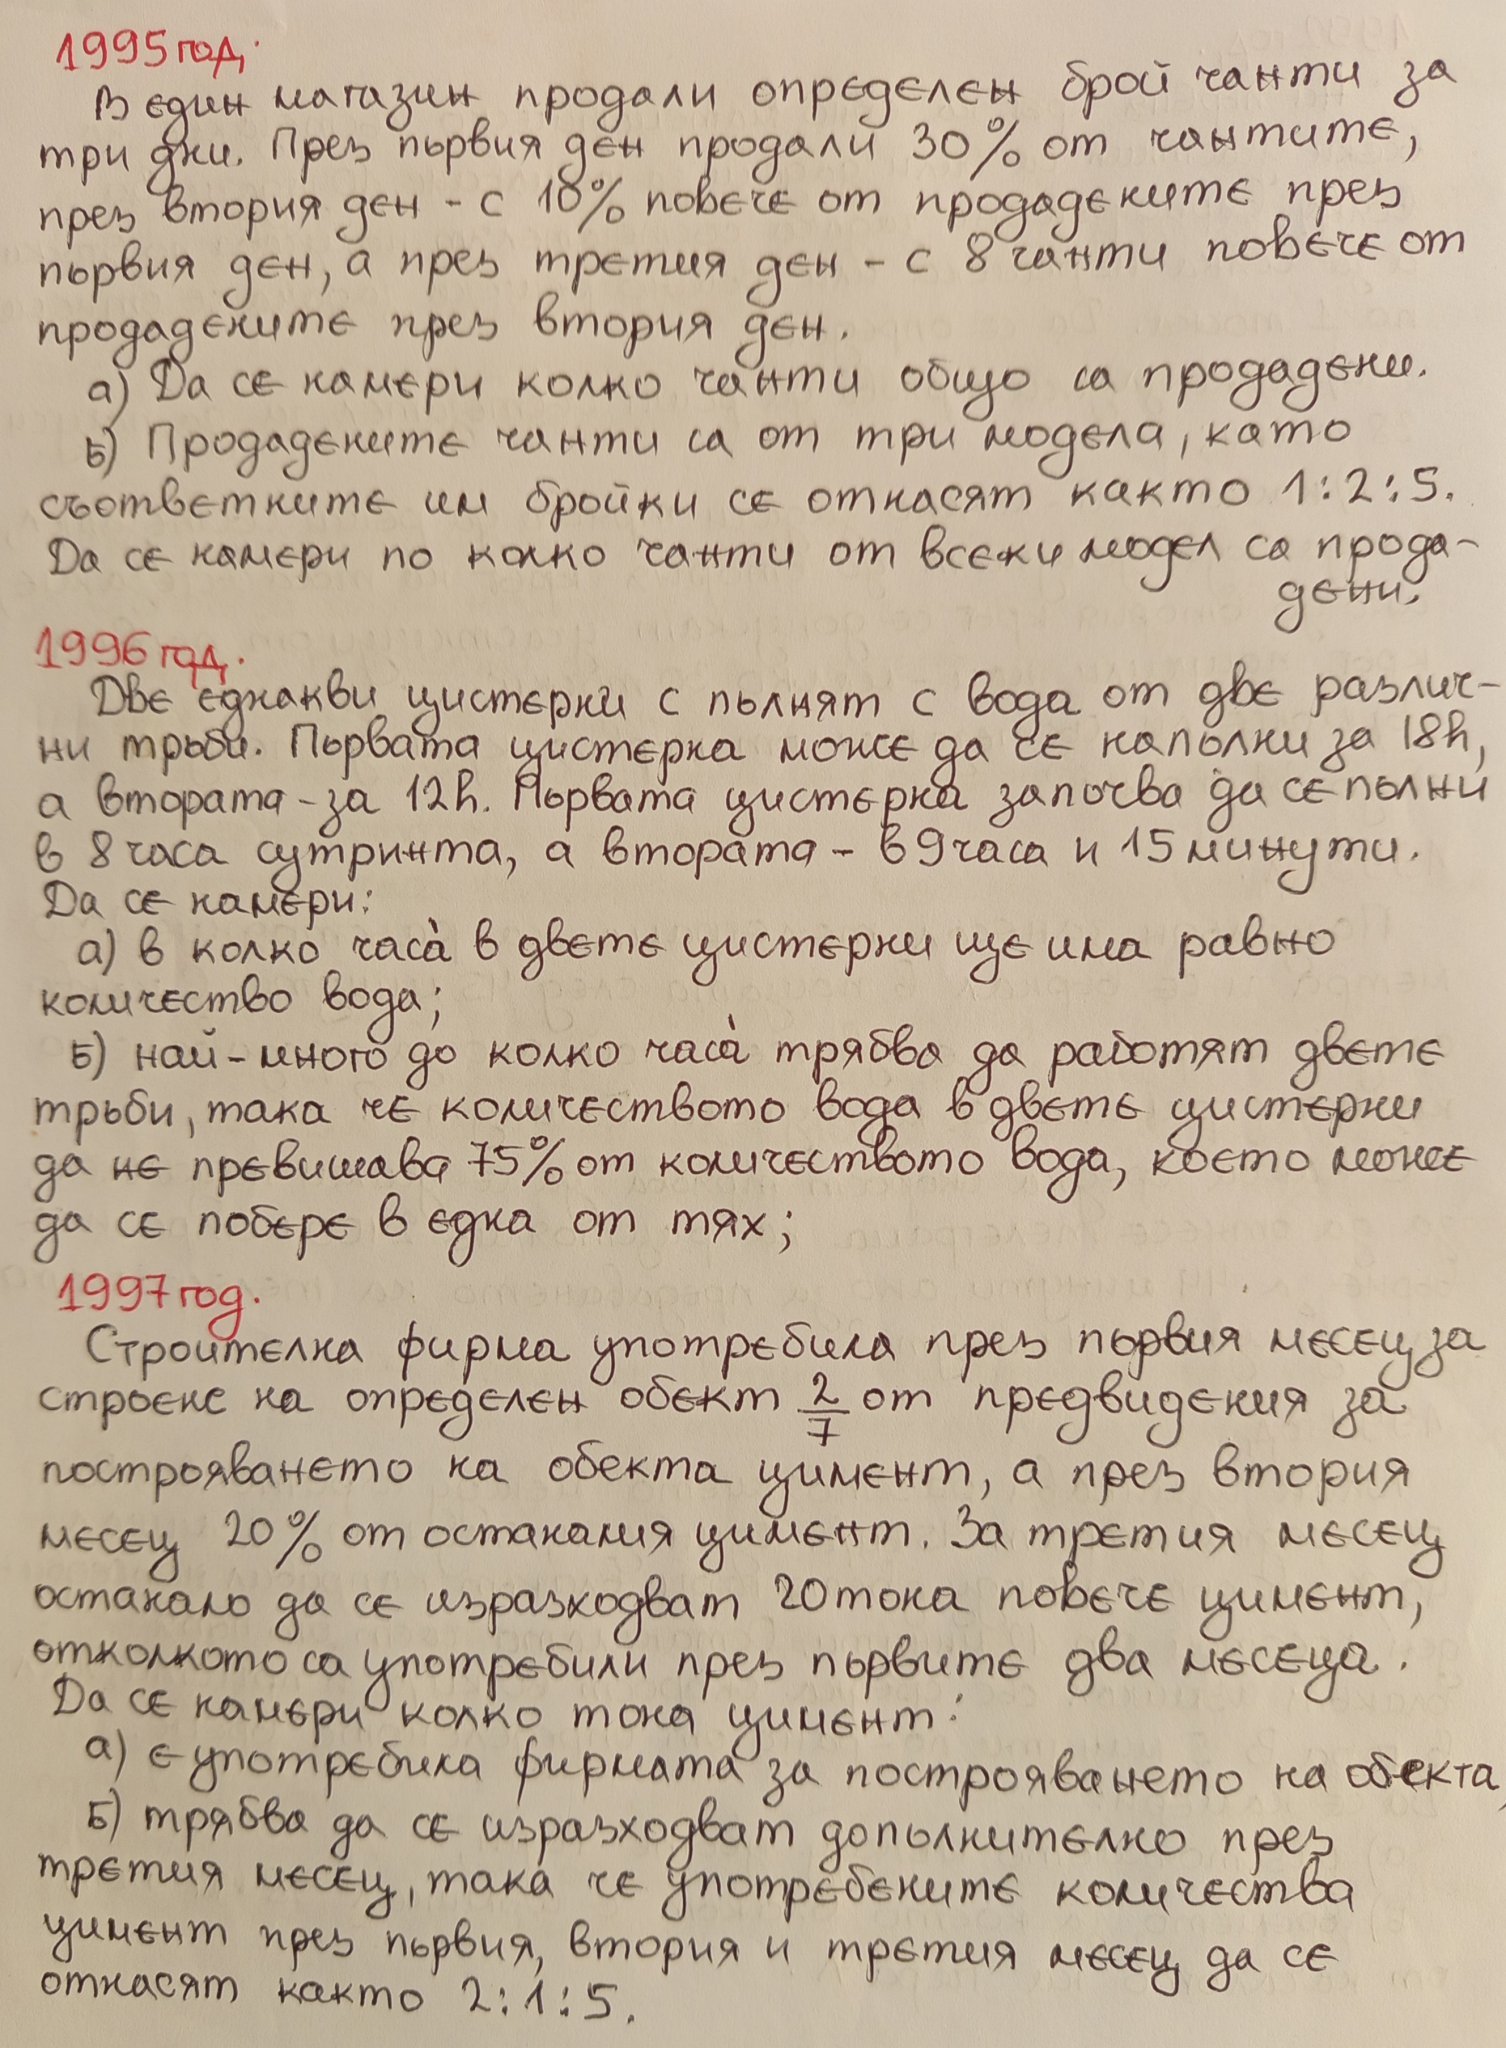 1995 год.
В един магазин продали определен брой чанти за
три дни. През първия ден продали 30% от чантите,
през втория ден - с 10% повече от продадените през
първия ден, а през третия ден - с 8 чанти повече от
продадените през втория ден.
а) Да се намери колко чанти общо са продадени.
Б) Продадените чанти са от три модела, като
съответните им бройки се отнасят както 1:2:5.
Да се намери по колко чанти от всеки модел са прода-
дени.
1996 год.
Две еднакви цистерни с пълнят с вода от две различ-
ни тръби. Първата цистерна може да се напълни за 18h,
а втората - за 12h. Първата цистерна започва да се пълни
в 8 часа сутринта, а втората - в 9 часа и 15 минути.
Да се намери:
а) в колко часа̀ в двете цистерни ще има равно
количество вода;
Б) най-много до колко часа̀ трябва да работят двете
тръби, така че количеството вода в двете цистерни
да не превишава 75% от количеството вода, което може
да се побере в една от тях;
1997 год.
Строителна фирма употребила през първия месец за
строеже на определен обект 2/7 от предвидения за
построяването на обекта цимент, а през втория
месец 20% от останалия цимент. За третия месец
останало да се изразходват 20 тона повече цимент,
отколкото са употребили през първите два месеца.
Да се намери колко тона цимент:
а) е употребила фирмата за построяването на обекта,
Б) трябва да се изразходват допълнително през
третия месец, така че употребените количества
цимент през първия, втория и третия месец да се
отнасят както 2:1:5.